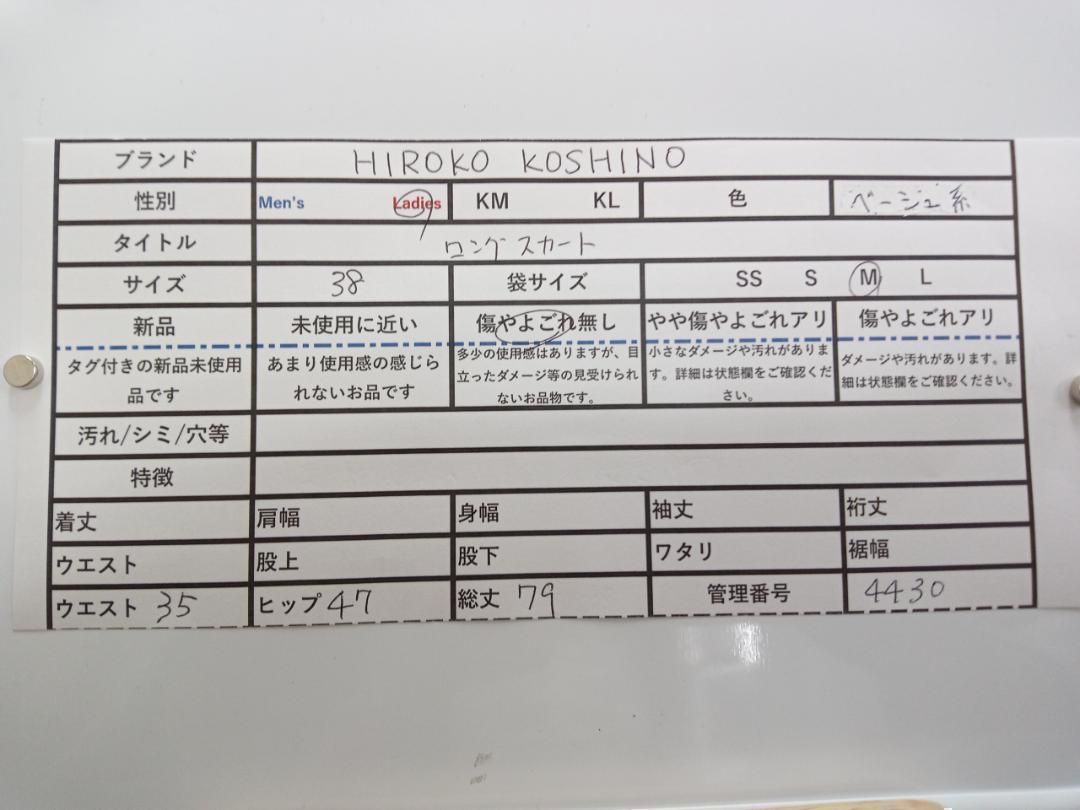 ブランド HIROKO KOSHINO
性別 Men's Ladies KM KL 色 ベージュ系
タイトル ロングスカート
サイズ 38 袋サイズ SS S M L
新品 未使用に近い 傷やよごれ無し やや傷やよごれアリ 傷やよごれアリ
タグ付きの新品未使用
品です
あまり使用感の感じら
れないお品です
多少の使用感はありますが、目
立ったダメージ等の見受けられ
ないお品物です。
小さなダメージや汚れがありま
す。詳細は状態欄をご確認くだ
さい。
ダメージや汚れがあります。詳
細は状態欄をご確認ください。
汚れ/シミ/穴等
特徴
着丈 肩幅 身幅 袖丈 裄丈
ウエスト 股上 股下 ワタリ 裾幅
ウエスト 35 ヒップ 47 総丈 79 管理番号 4430